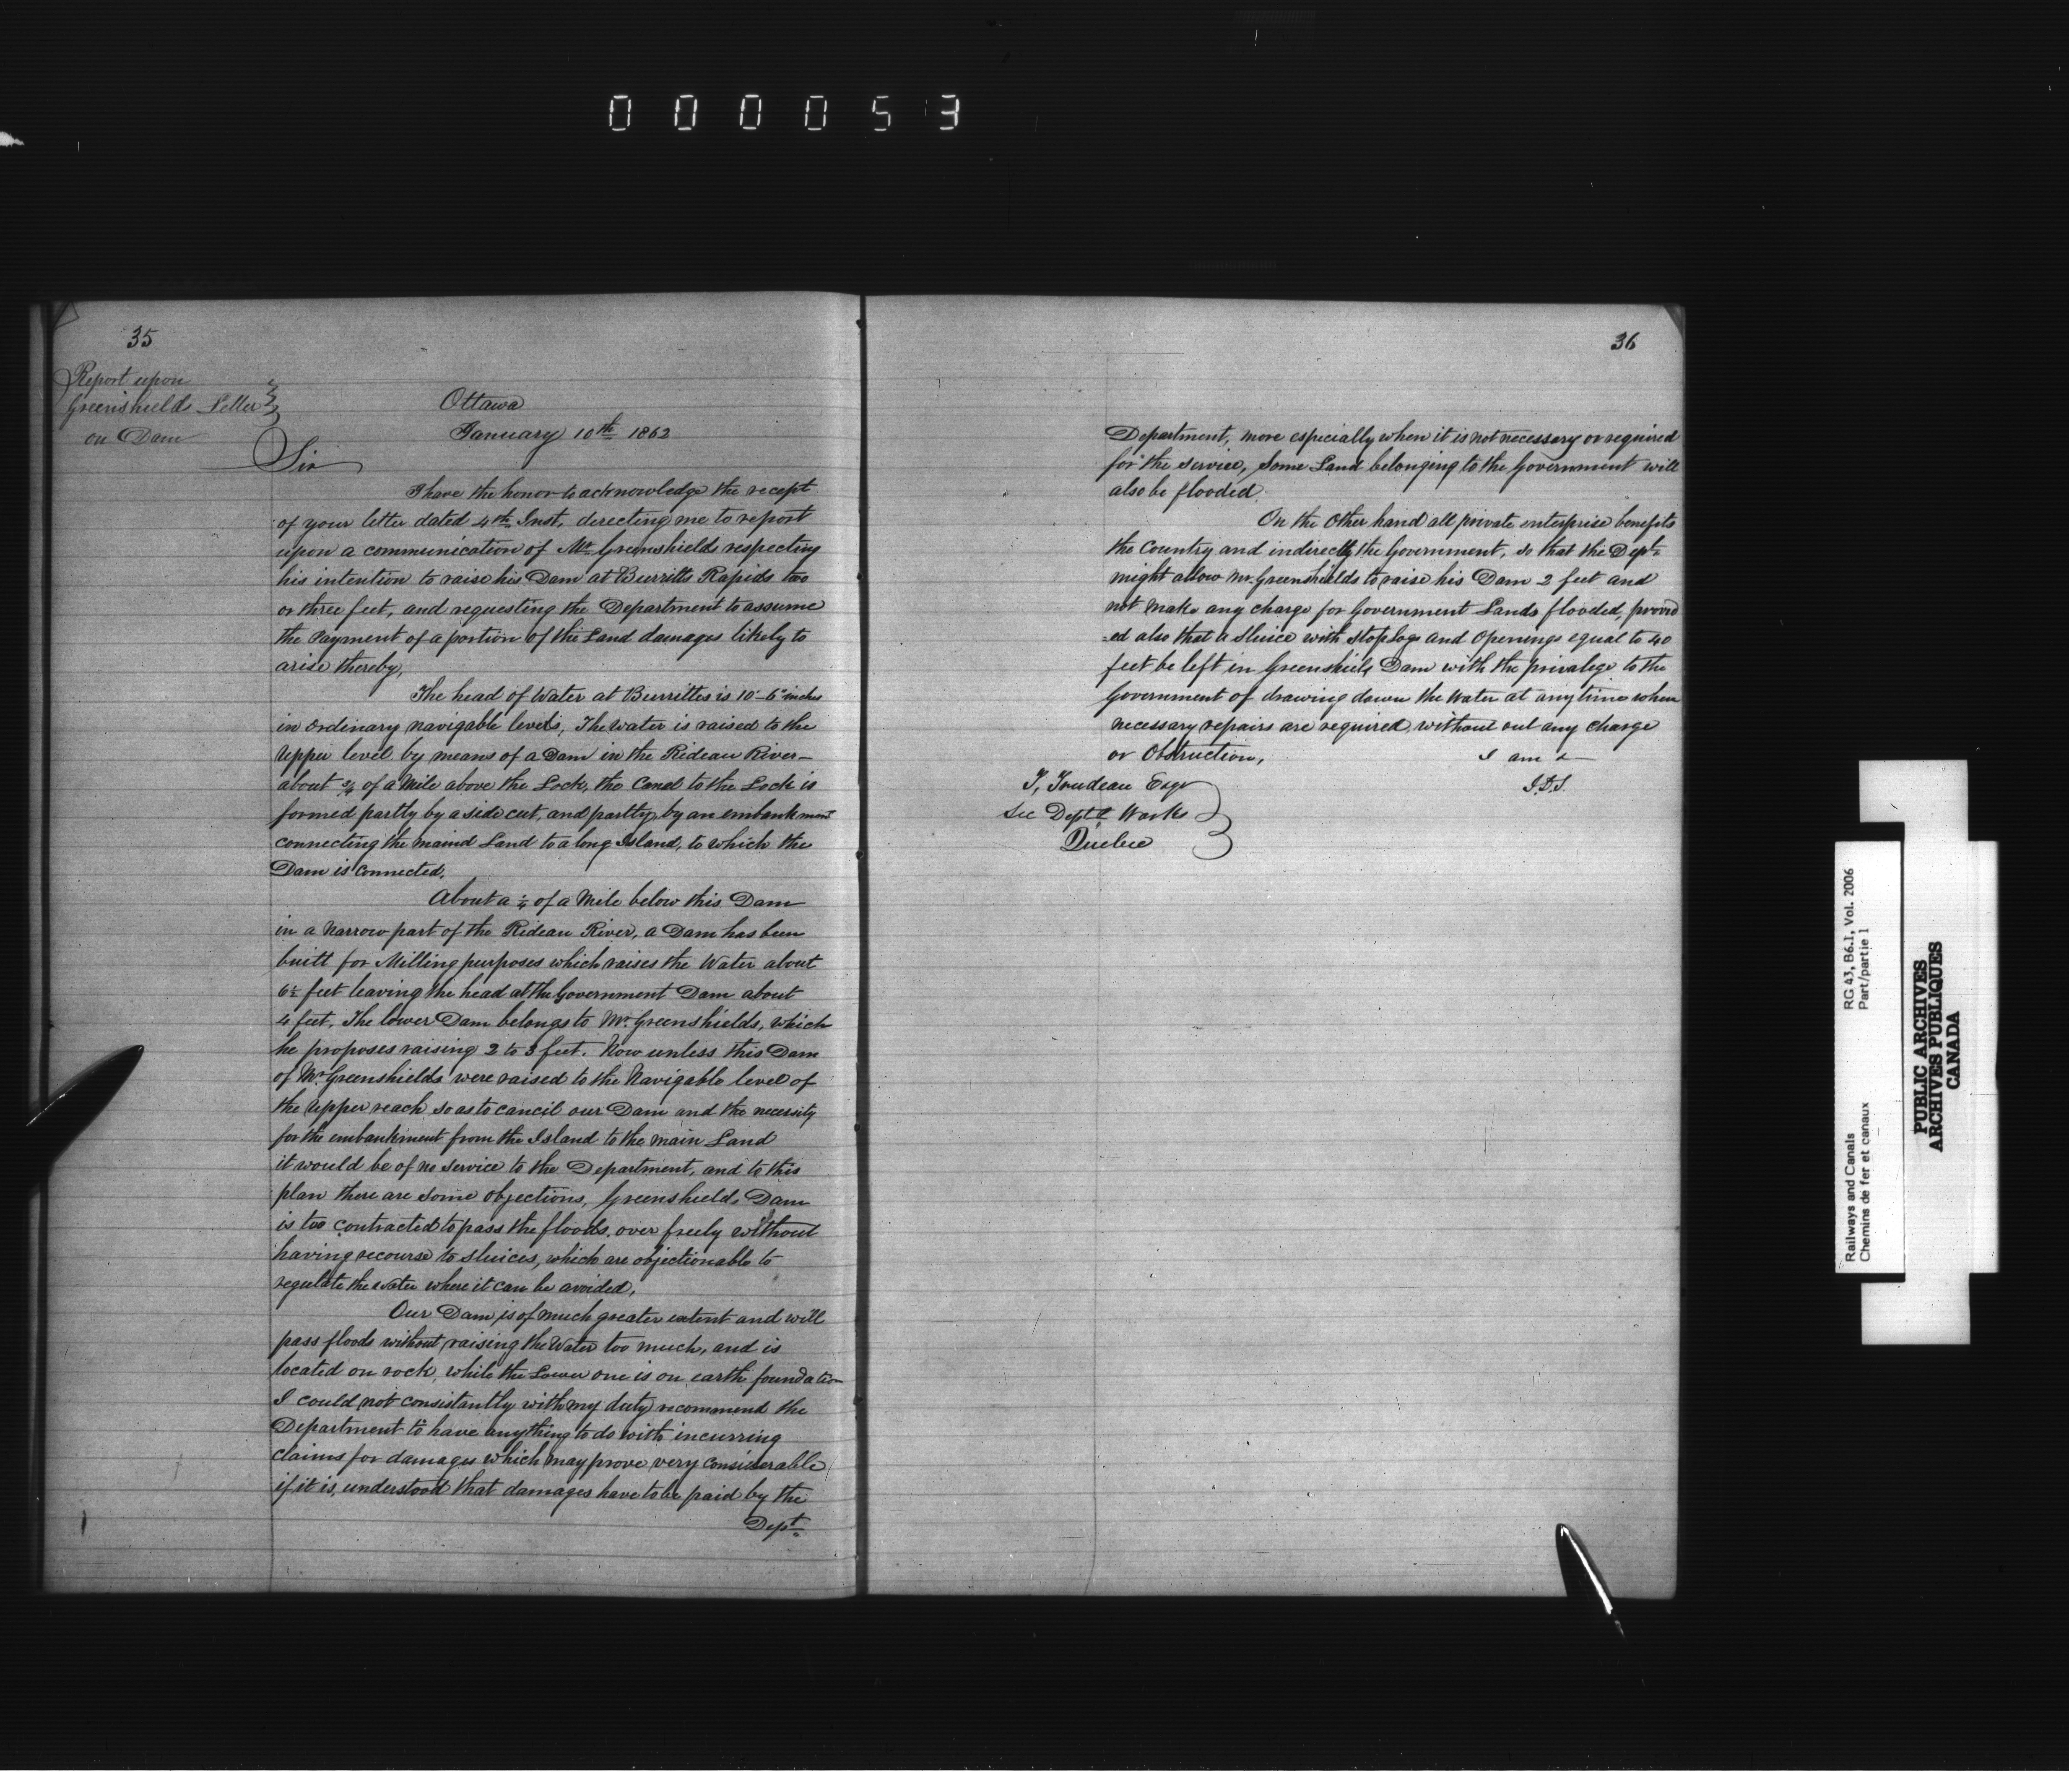 000053
35
Report upon
Greenshields Letter
on Dam
Ottawa
January 10th 1862
Sir
I have the honor to acknowledge the recept
of your letter dated 4th Inst, directing me to report
upon a communication of Mr Greenshields respecting
his intention to raise his Dam at Burritts Rapids two
or three feet, and requesting the Department to assume
the Payment of a portion of the Land damages likely to
arise thereby,
The head of Water at Burrittes is 10'-6" inches
in ordinary navigable levels, The water is raised to the
Upper level by means of a Dam in the Rideau River-
about ¾ of a Mile above the Lock, the Canal to the Lock is
formed partly by a side cut, and partly by an embankment
connecting the maind Land to a long Island, to which the
Dam is connected.
About a ¼ of a Mile below this Dam
in a Narrow part of the Rideau River, a Dam has been
built for Milling purposes which raises the Water about
6½ feet leaving the head at the Government Dam about
4 feet. The lower Dam belongs to Mr. Greenshields, which
he proposes raising 2 to 3 feet. Now unless this Dam
of Mr. Greenshields were raised to the Navigable level of
the Upper reach so as to cancil our Dam and the necessity
for the embankment from the Island to the main Land
it would be of no service to the Department, and to this
plan there are some objections, Greenshields Dam
is too contracted to pass the floods over freely without
having recourse to sluices, which are objectionable to
regulate the water where it can be avoided,
Our Dam is of much greater extent and will
pass floods without raising the Water too much, and is
located on rock, while the Lower one is on earth foundation
I could not consistantly with my duty recommend the
Department to have anything to do with incurring
claims for damages which may prove very considerable
if it is, understood that damages have to be paid by the
Dept.
36
Department, more especially when it is not necessary or required
for the service, Some Land belonging to the Government will
also be flooded.
On the Other hand all private enterprise benefits
the Country and indirectly the Government, so that the Dept.
might allow Mr. Greenshields to raise his Dam 2 feet and
not make any charge for Government Lands flooded, provid
=ed also that a Sluice with stoplogs and Openings equal to 40
feet be left in Greenshields Dam with the privalege to the
Government of drawing down the Water at any time when
necessary repairs are required without out any charge
or Obstruction,
I am &
J.D.S.
T, Trudeau Esqr
Sec Dept Works
Quebec
Railways and Canals
Chemins de fer et canaux
RG 43, B6.1, Vol. 2006
Part/partie 1
PUBLIC ARCHIVES
ARCHIVES PUBLIQUES
CANADA